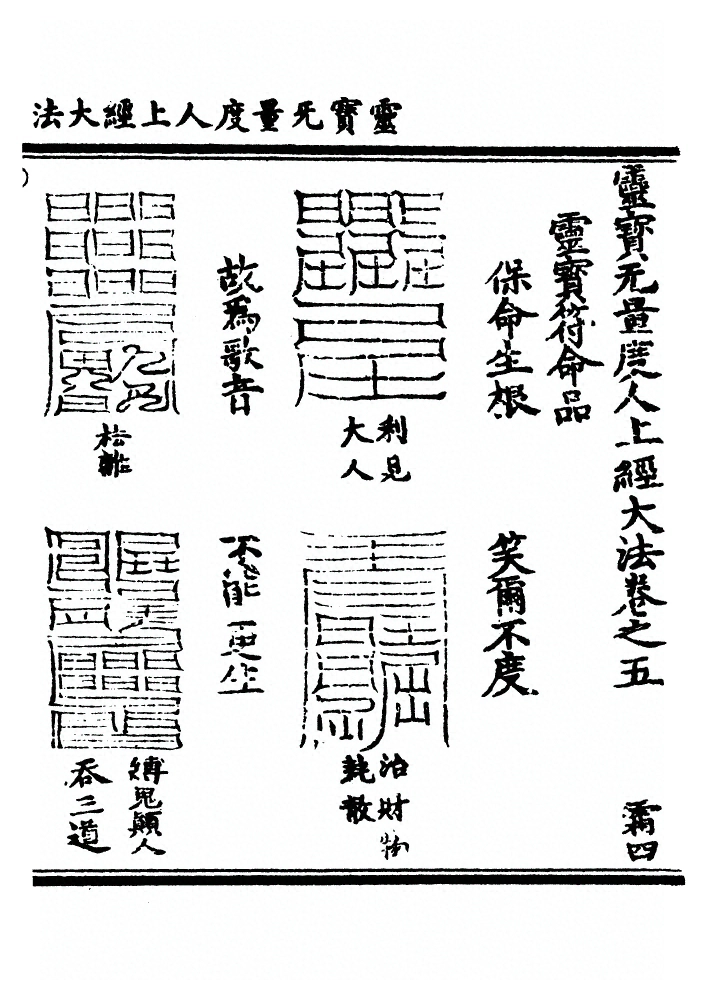 靈寶无量度人上經大法
靈寶无量度人上經大法卷之五
霜四
靈寶符命品
保命生根
笑爾不度
利見
大人
治財物
耗散
故為歌音
不能更生
松離
縛鬼顛人
吞三道